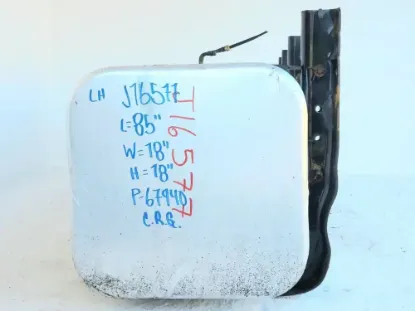 LH J16577
L=85"
W=18"
H=18"
P=67940
C.R.B.
T16577